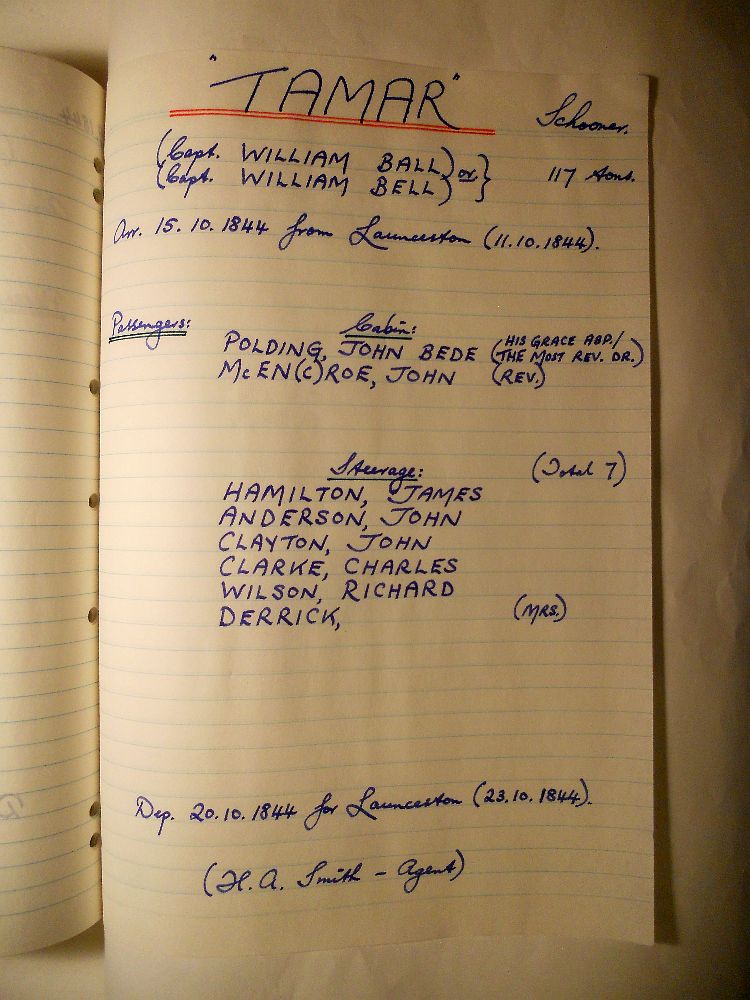 "TAMAR"
Schooner.
(Capt. WILLIAM BALL) or }
(Capt. WILLIAM BELL)
117 tons.
Arr. 15.10.1844 from Launceston (11.10.1844).
Passengers:
Cabin:
POLDING, JOHN BEDE (HIS GRACE ABP./
(THE MOST REV. DR.)
McEN(C)ROE, JOHN (REV.)
Steerage: (Total 7)
HAMILTON, JAMES
ANDERSON, JOHN
CLAYTON, JOHN
CLARKE, CHARLES
WILSON, RICHARD
DERRICK, (MRS.)
Dep. 20.10.1844 for Launceston (23.10.1844).
(H.A. Smith - Agent)